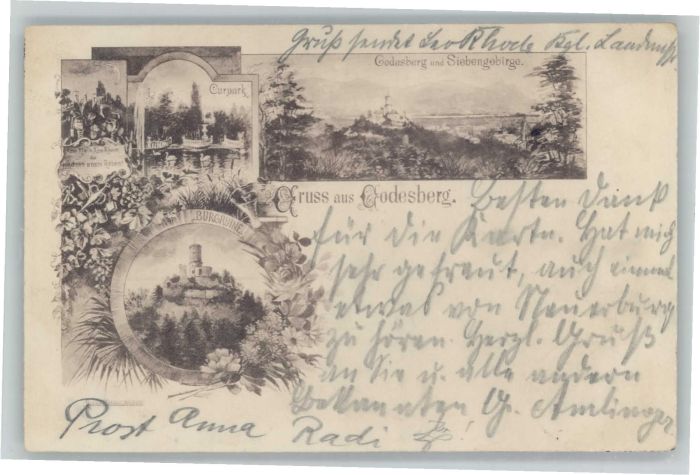 Gruß sendet Leo Rhode Kgl. Landmess.
Godesberg und Siebengebirge.
Curpark
Gruss aus Godesberg.
BURGRUINE
Besten Dank
für die Karte. Hat mich
sehr gefreut, auch einmal
etwas von Neuerburg
zu hören. Herzl. Gruß
an Sie u. alle andern
Bekannten G. Amlinger
Prost Anna Radi